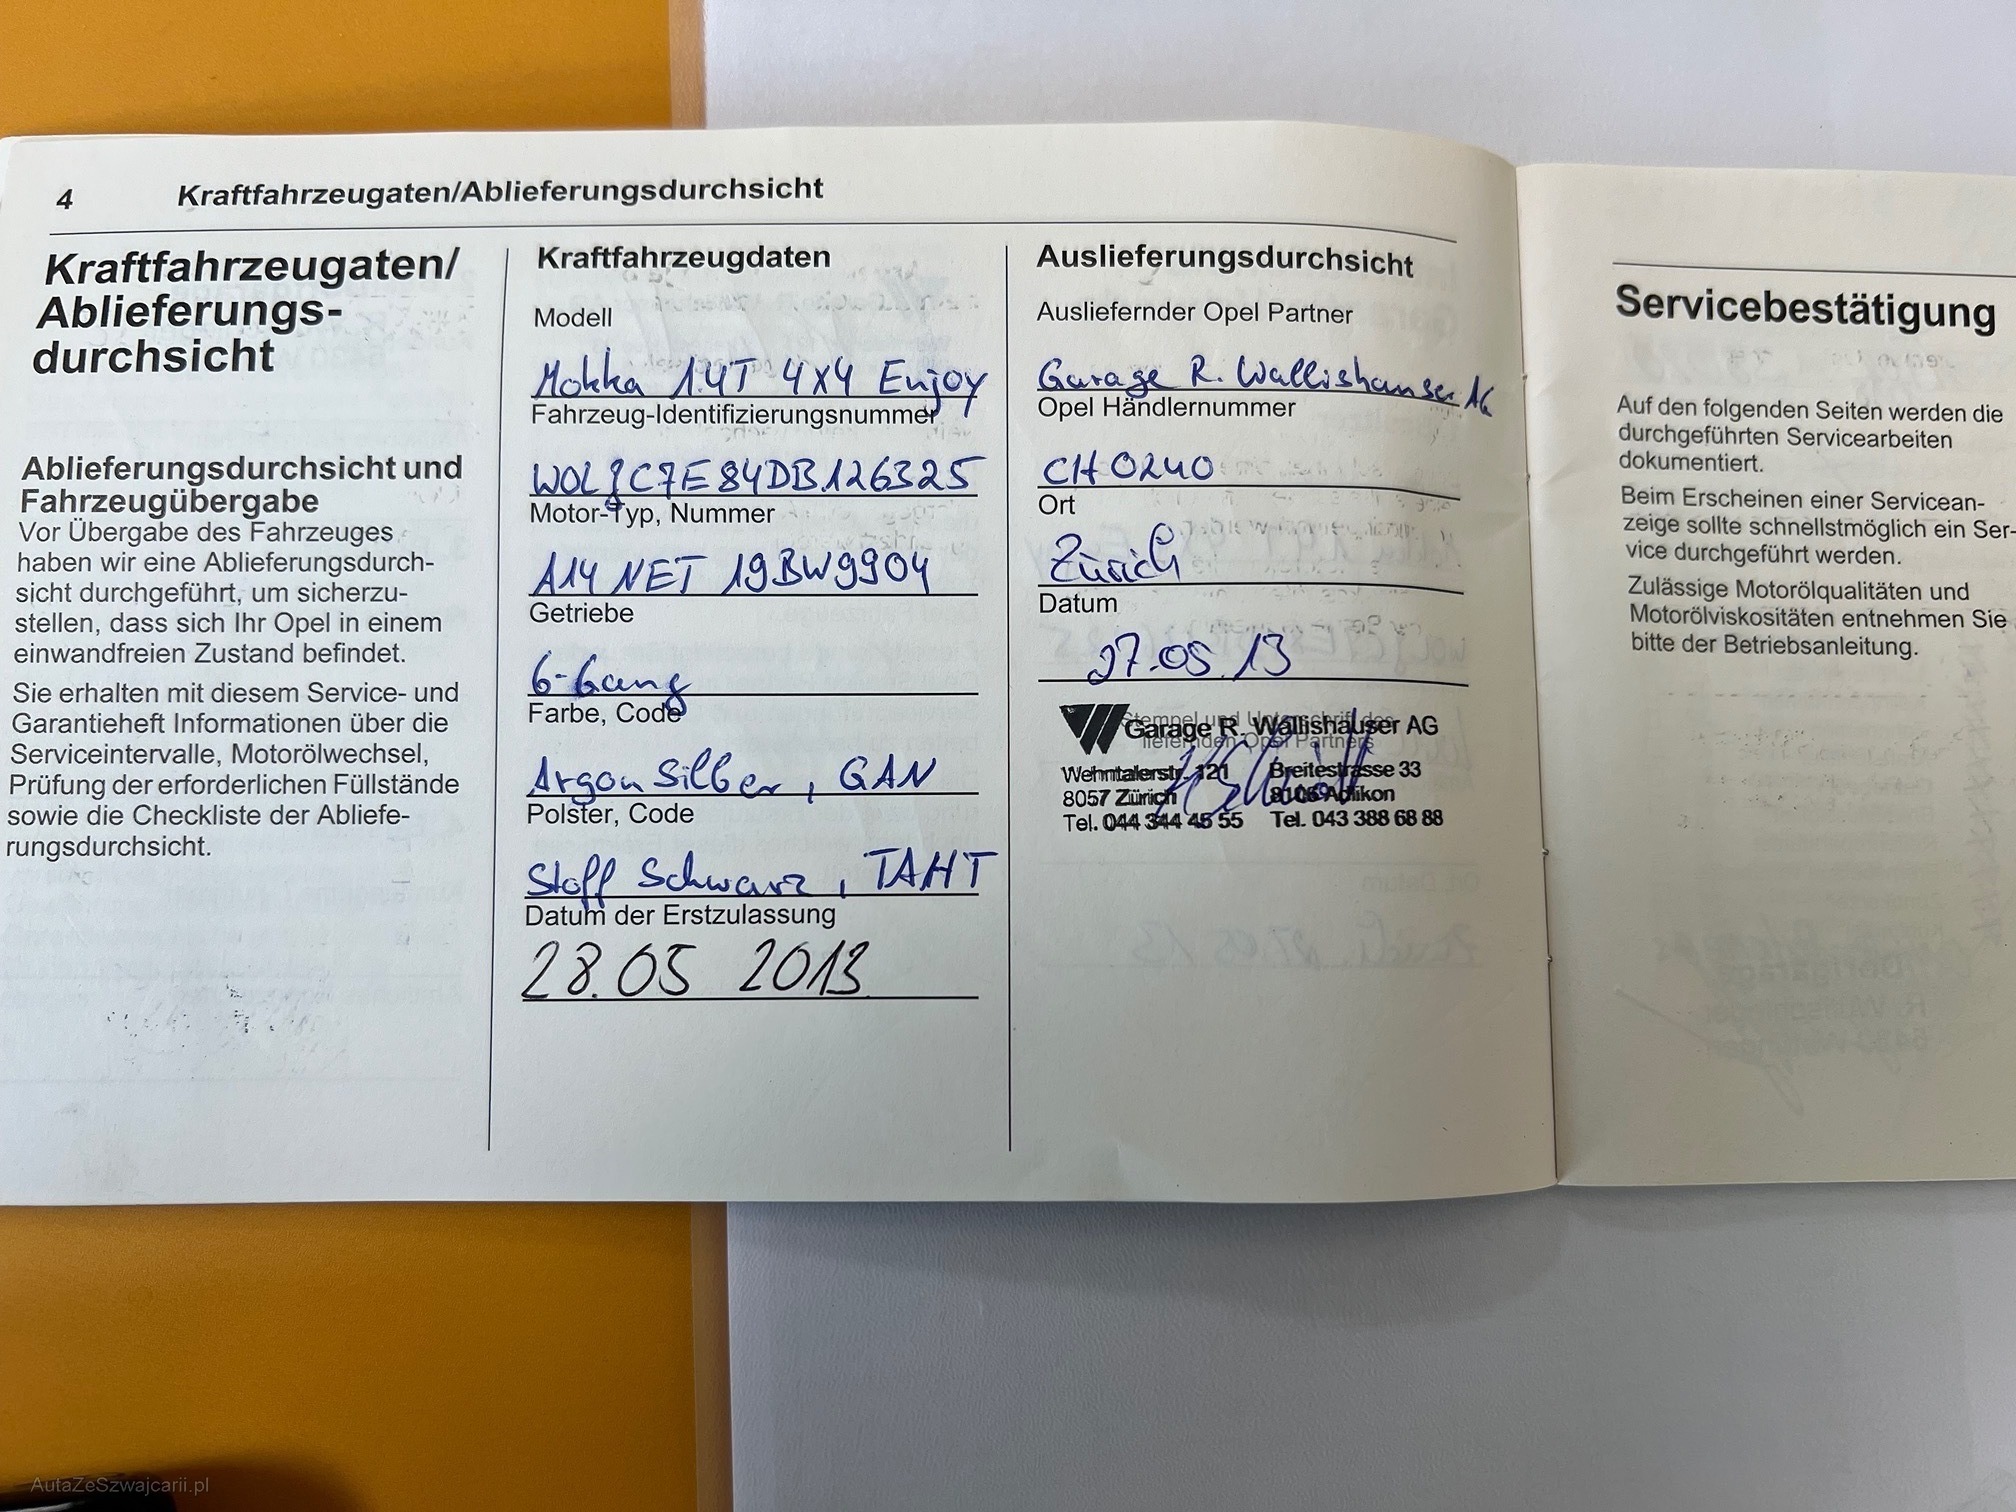 4 Kraftfahrzeugaten/Ablieferungsdurchsicht
Kraftfahrzeugaten/
Ablieferungs-
durchsicht
Ablieferungsdurchsicht und
Fahrzeugübergabe
Vor Übergabe des Fahrzeuges
haben wir eine Ablieferungsdurch-
sicht durchgeführt, um sicherzu-
stellen, dass sich Ihr Opel in einem
einwandfreien Zustand befindet.
Sie erhalten mit diesem Service- und
Garantieheft Informationen über die
Serviceintervalle, Motorölwechsel,
Prüfung der erforderlichen Füllstände
sowie die Checkliste der Abliefe-
rungsdurchsicht.
Kraftfahrzeugdaten
Modell
Mokka 1.4T 4x4 Enjoy
Fahrzeug-Identifizierungsnummer
WOLJC7E84DB126325
Motor-Typ, Nummer
A14NET 19BW9904
Getriebe
6-Gang
Farbe, Code
Argon Silber, GAN
Polster, Code
Stoff Schwarz, TAHT
Datum der Erstzulassung
28.05 2013
Auslieferungsdurchsicht
Ausliefernder Opel Partner
Garage R. Wallishauser AG
Opel Händlernummer
CH 0240
Ort
Zürich
Datum
27.05.13
Stempel und Unterschrift des
liefernden Opel Partners
Garage R. Wallishauser AG
Wehntalerstr. 121 Breitestrasse 33
8057 Zürich 8106 Adlikon
Tel. 044 344 45 55 Tel. 043 388 68 88
Servicebestätigung
Auf den folgenden Seiten werden die
durchgeführten Servicearbeiten
dokumentiert.
Beim Erscheinen einer Servicean-
zeige sollte schnellstmöglich ein Ser-
vice durchgeführt werden.
Zulässige Motorölqualitäten und
Motorölviskositäten entnehmen Sie
bitte der Betriebsanleitung.
AutaZeSzwajcarii.pl